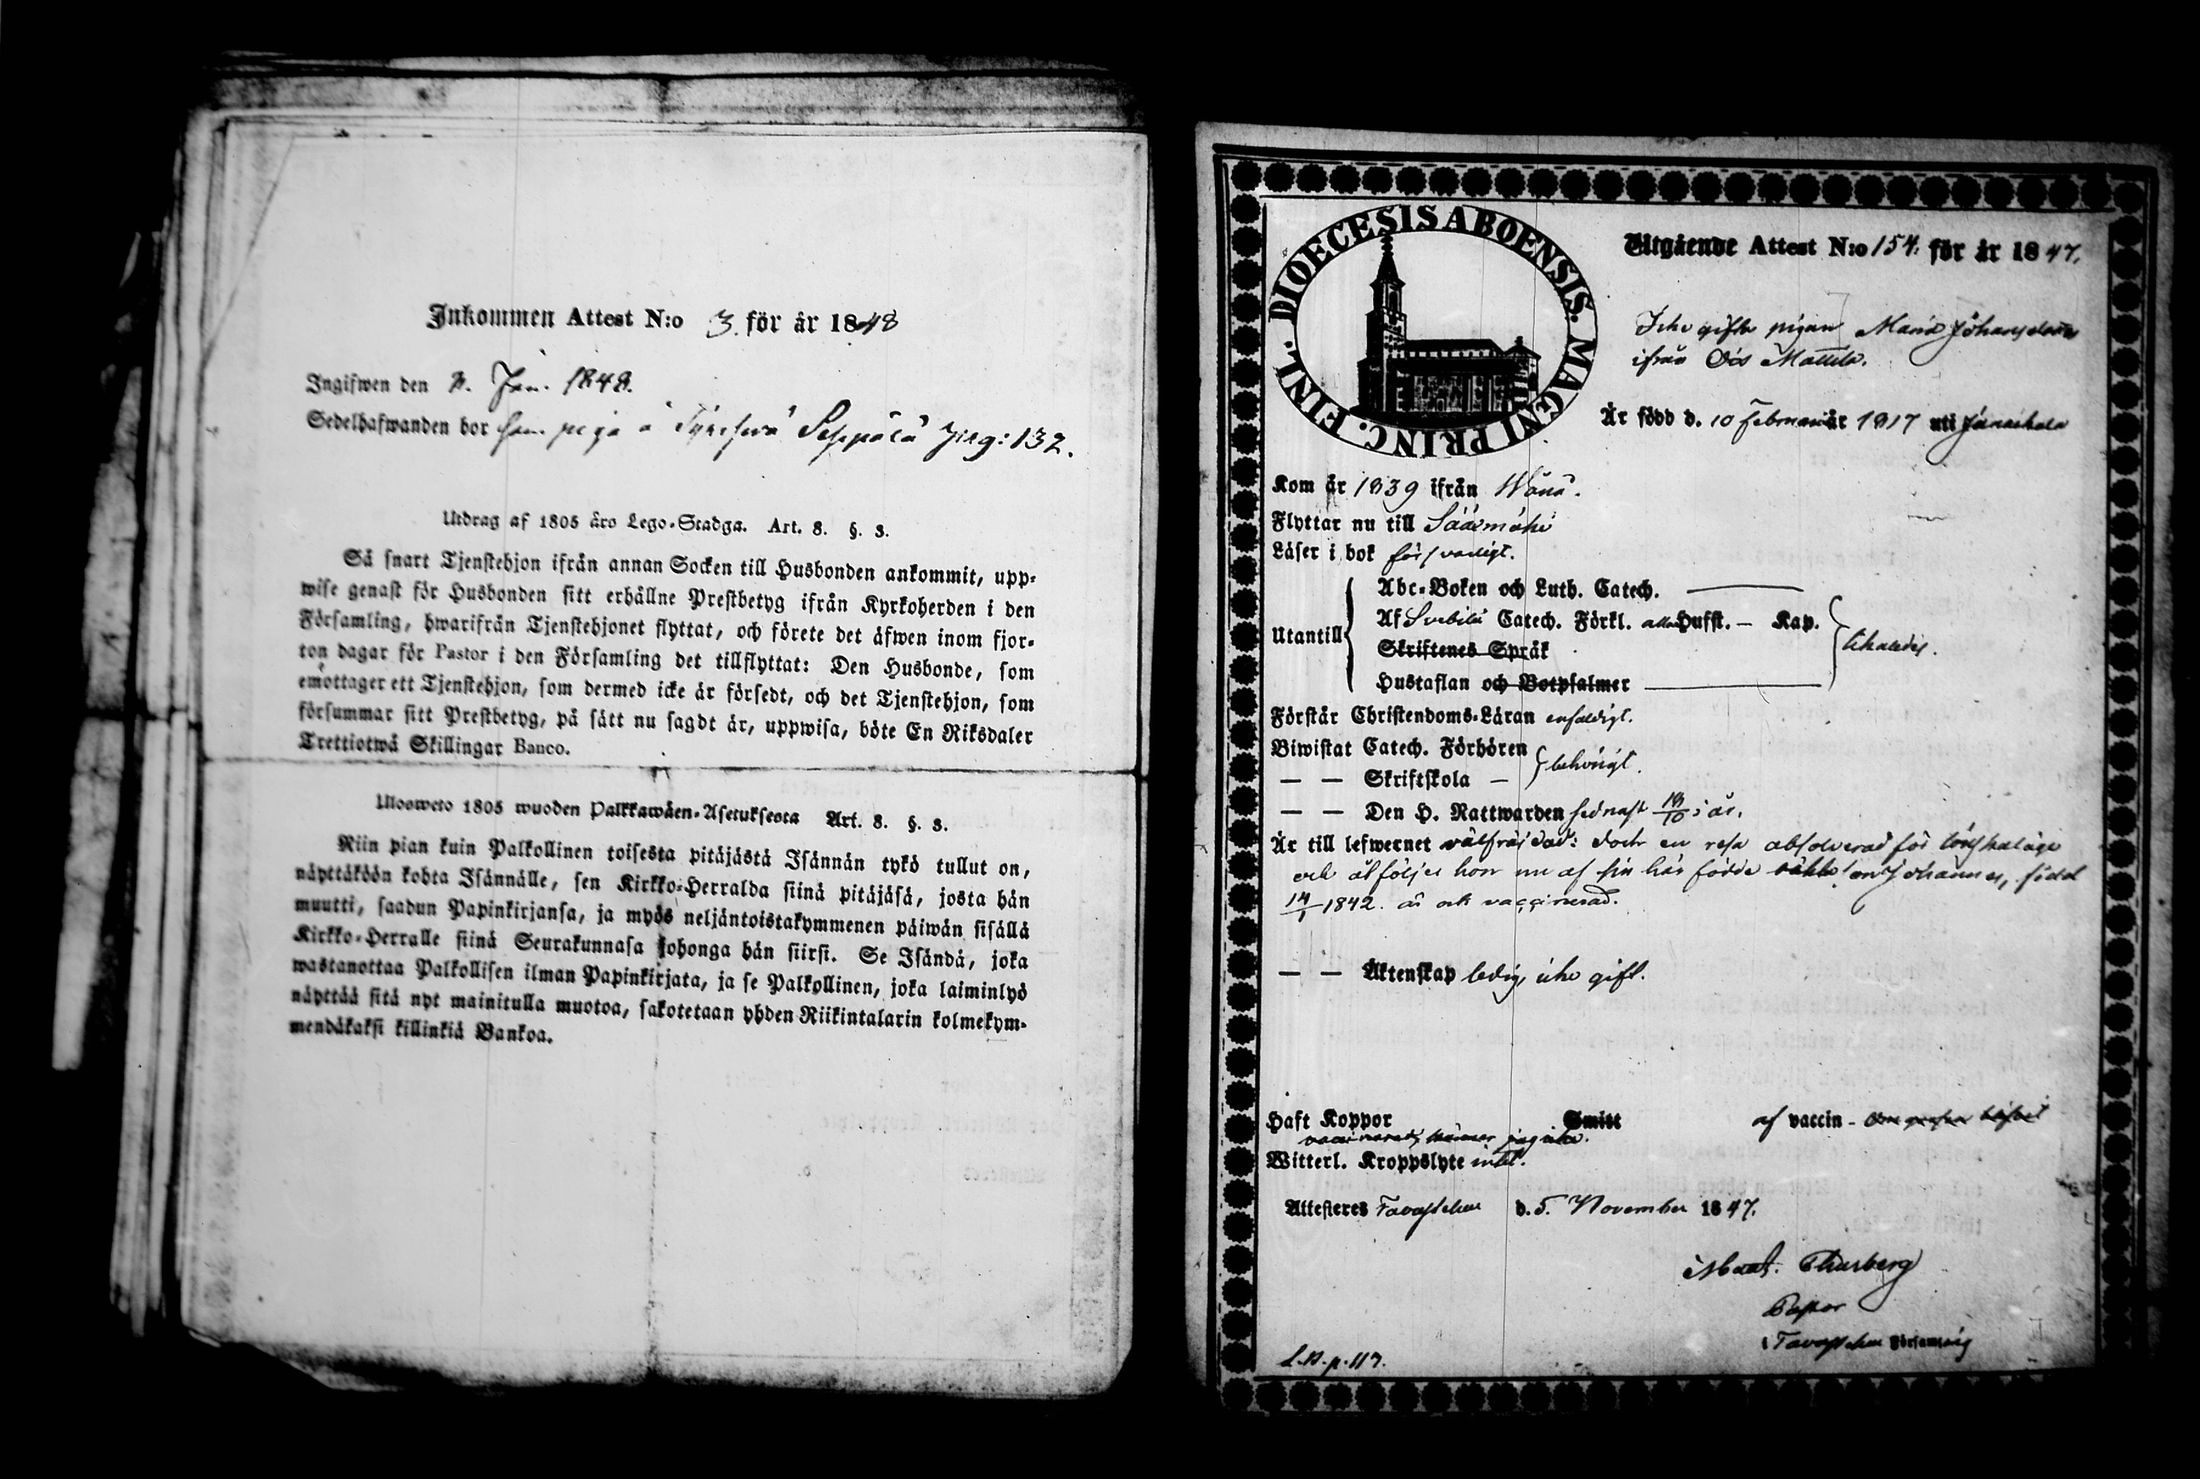 Inkommen Attest N:o 3. för år 1848
Ingifwen den Jan. 1848.
Sedelhafwanden bor som piga å Seppälä pag: 132.
Utdrag af 1805 års Lego-Stadga. Art. 8. §. 3.
Så snart Tjenstehjon ifrån annan Socken till Husbonden ankommit, upp-
wise genast för Husbonden sitt erhållne Prestbetyg ifrån Kyrkoherden i den
Församling, hwarifrån Tjenstehjonet flyttat, och förete det äfwen inom fjor-
ton dagar för Pastor i den Församling det tillflyttat: Den Husbonde, som
emottager ett Tjenstehjon, som dermed icke är försedt, och det Tjenstehjon, som
försummar sitt Prestbetyg, på sätt nu sagdt är, uppwisa, böte En Riksdaler
Trettiotwå Skillingar Banco.
Ulosweto 1805 wuoden Palkkawäen-Asetuksesta Art. 8. §. 3.
Niin pian kuin Palkollinen toisesta pitäjästä Isännän tykö tullut on,
näyttäköön kohta Isännälle, sen Kirkko-Herralda siinä pitäjäsä, josta hän
muutti, saadun Papinkirjansa, ja myös neljäntoistakymmenen päiwän sisällä
Kirkko-Herralle siinä Seurakunnasa johonga hän siirsi. Se Isändä, joka
wastanottaa Palkollisen ilman Papinkirjata, ja se Palkollinen, joka laiminlyö
näyttää sitä nyt mainitulla muotoa, sakotetaan yhden Riikintalarin kolmekym-
mendäkaksi killinkiä Bankoa.
DIOECESIS ABOENSIS. MAGNI PRINC. FINL.
Utgående Attest N:o 154. för år 1847.
Icke gifta pigan Maria Johansdotter
ifrån Ojois Mattila.
Är född d. 10 Februari år 1817 uti Janakkala
Kom år 1839 ifrån Wånå.
Flyttar nu till Sääksmäki
Läser i bok försvarligt.
Abc-Boken och Luth. Catech.
Utantill Af Svebilii Catech. Förkl. alla Hufst. — Kap.
Skriftenes Språk
likaledes.
Hustaflan och Botpsalmer
Förstår Christendoms-Läran enfaldigt.
Biwistat Catech. Förhören
— — Skriftskola — behörigt.
— — Den H. Nattwarden sednast 18/10 i år.
Är till lefwernet välfräjdad: dock en resa absolverad för lönskaläge
och åtföljes hon nu af sin här födde oäkta son Johannes, född
14/1 1842. är ock vaccinerad.
— — Äktenskap ledig, icke gift.
Haft Koppor Smitt af vaccin -
vaccinerad, känner jag icke.
Witterl. Kroppslyte intet.
Attesteres Tavastehus d. 5. November 1847.
Thurberg
Pastor
i Tavastehus Församling
L.B. p. 117.